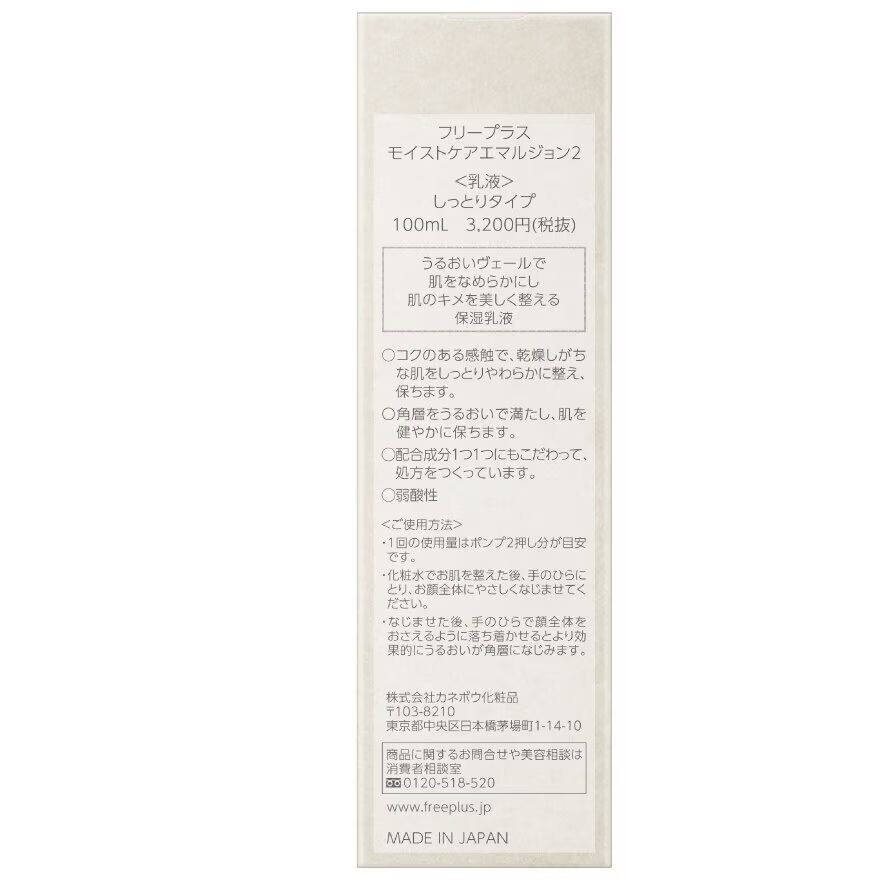 フリープラス
モイストケアエマルジョン2
＜乳液＞
しっとりタイプ
100mL　3,200円(税抜)
うるおいヴェールで
肌をなめらかにし
肌のキメを美しく整える
保湿乳液
○コクのある感触で、乾燥しがち
な肌をしっとりやわらかに整え、
保ちます。
○角層をうるおいで満たし、肌を
健やかに保ちます。
○配合成分1つ1つにもこだわって、
処方をつくっています。
○弱酸性
＜ご使用方法＞
・1回の使用量はポンプ2押し分が目安
です。
・化粧水でお肌を整えた後、手のひらに
とり、お顔全体にやさしくなじませてく
ださい。
・なじませた後、手のひらで顔全体を
おさえるように落ち着かせるとより効
果的にうるおいが角層になじみます。
株式会社カネボウ化粧品
〒103-8210
東京都中央区日本橋茅場町1-14-10
商品に関するお問合せや美容相談は
消費者相談室
0120-518-520
www.freeplus.jp
MADE IN JAPAN